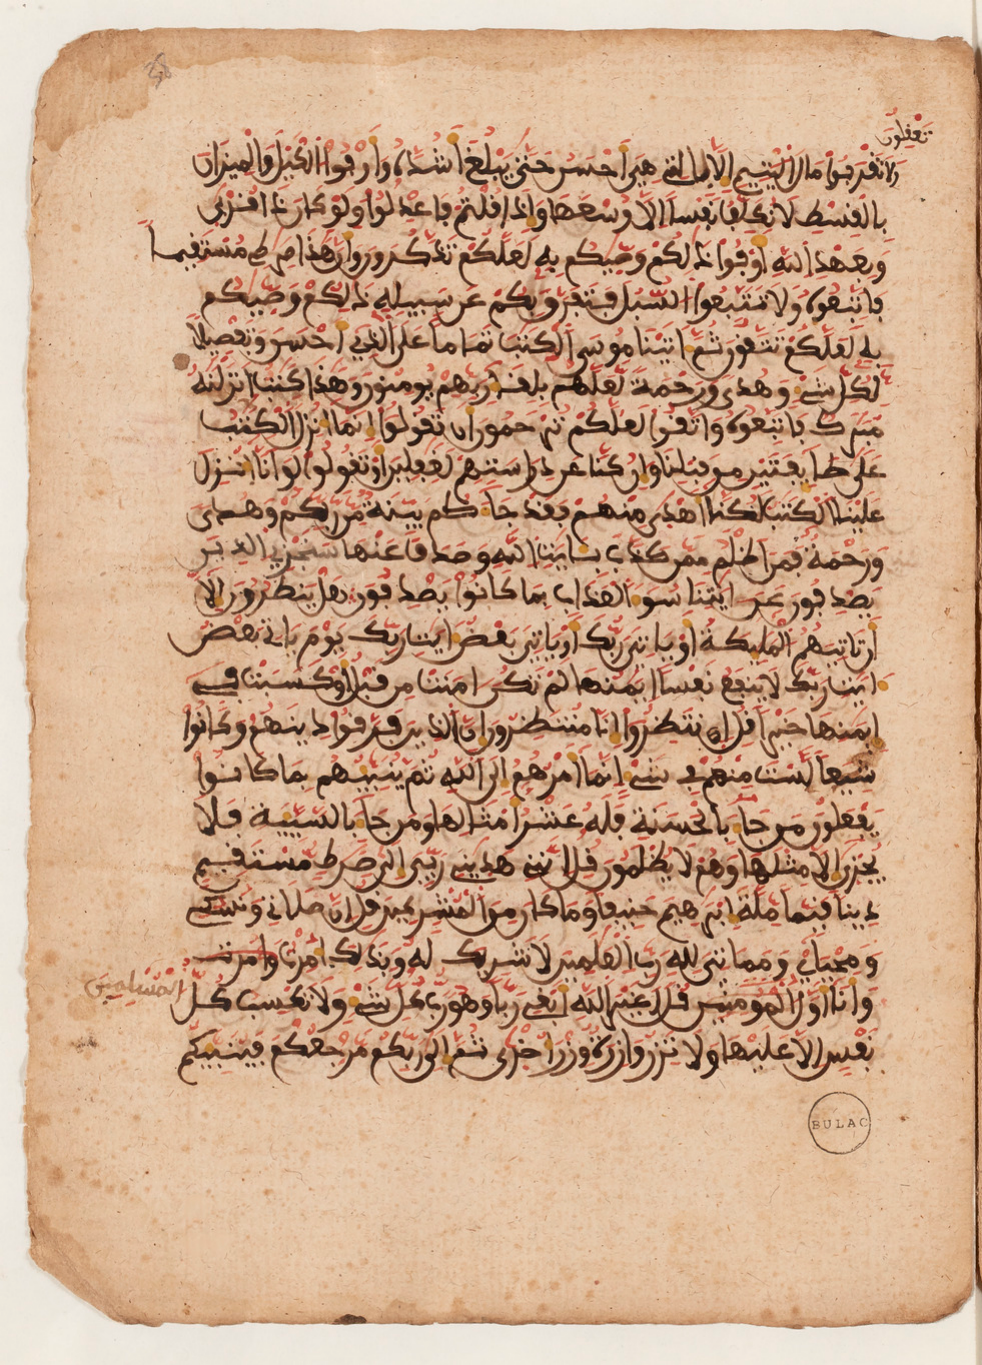 تعقلون
ولا تقربوا مال اليتيم الا بالتي هي احسن حتى يبلغ اشده واوفوا الكيل والميزان
بالقسط لا نكلف نفسا الا وسعها واذا قلتم فاعدلوا ولو كان ذا قربى
وبعهد الله اوفوا ذلكم وصيكم به لعلكم تذكرون وان هذا صرطى مستقيما
فاتبعوه ولا تتبعوا السبل فتفرق بكم عن سبيله ذلكم وصيكم
به لعلكم تتقون ثم اتينا موسى الكتب تماما على الذي احسن وتفصيلا
لكل شيء وهدى ورحمة لعلهم بلقاء ربهم يومنون وهذا كتب انزلنه
مبرك فاتبعوه واتقوا لعلكم ترحمون ان تقولوا انما انزل الكتب
على طايفتين من قبلنا وان كنا عن دراستهم لغفلين او تقولوا لو انا انزل
علينا الكتب لكنا اهدى منهم فقد جاكم بينة من ربكم وهدى
ورحمة فمن اظلم ممن كذب بايت الله وصدف عنها سنجزي الذين
يصدفون عن ايتنا سو العذاب بما كانوا يصدفون هل ينظرون الا
ان تاتيهم المليكة او ياتي ربك او ياتي بعض ايت ربك يوم ياتي بعض
ايت ربك لا ينفع نفسا ايمنها لم تكن امنت من قبل او كسبت في
ايمنها خيرا قل انتظروا انا منتظرون ان الذين فرقوا دينهم وكانوا
شيعا لست منهم في شيء انما امرهم الى الله ثم ينبيهم بما كانوا
يفعلون من جا بالحسنة فله عشر امثالها ومن جا بالسيية فلا
يجزى الا مثلها وهم لا يظلمون قل انني هديني ربي الى صرط مستقيم
دينا قيما ملة ابرهيم حنيفا وما كان من المشركين قل ان صلاتي ونسكي
ومحياي ومماتي لله رب العلمين لا شريك له وبذلك امرت وامرت
المسلمين
وانا اول المومنين قل اغير الله ابغي ربا وهو رب كل شيء ولا تكسب كل
نفس الا عليها ولا تزر وازرة وزر اخرى ثم الى ربكم مرجعكم فينبيكم
BULAC